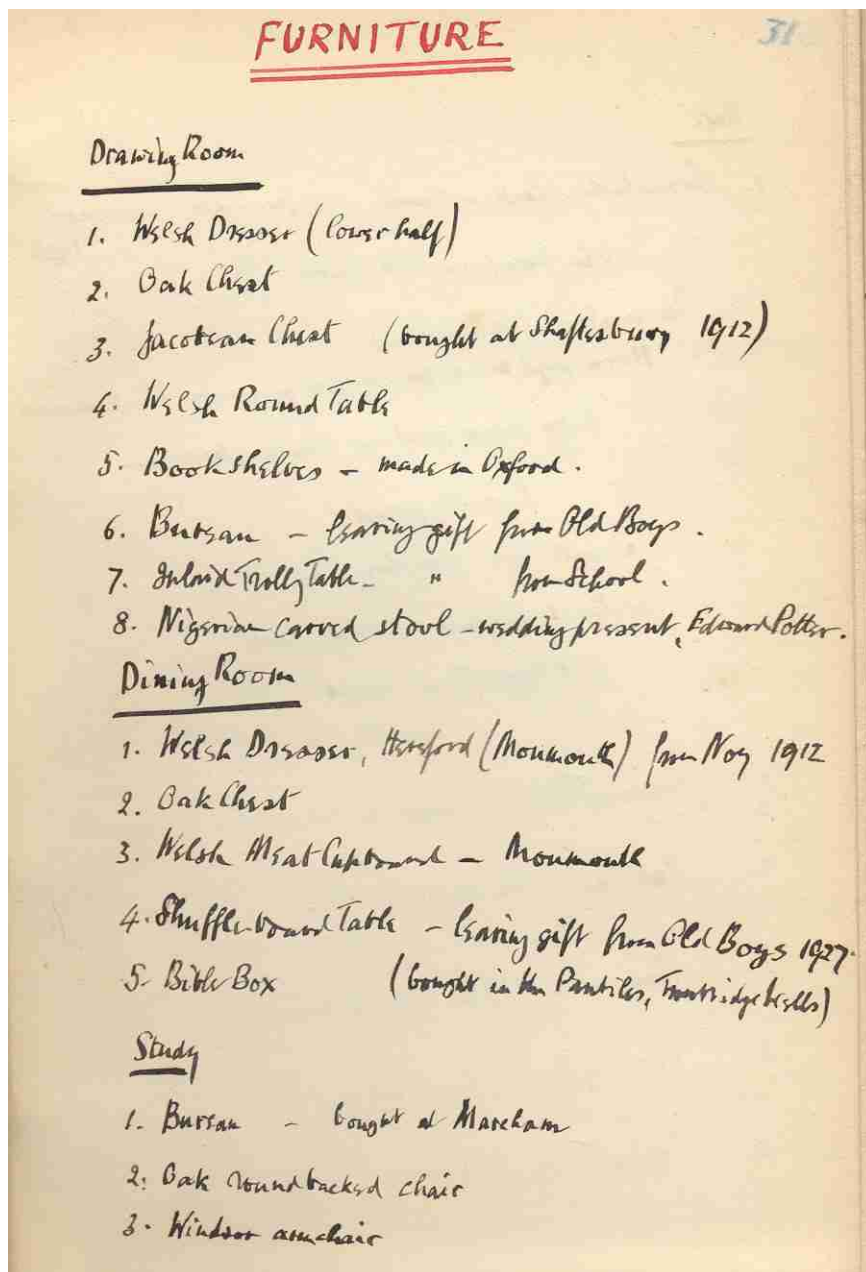 FURNITURE
31
Drawing Room
1. Welsh Dresser (lower half)
2. Oak Chest
3. Jacobean Chest (bought at Shaftesbury 1912)
4. Welsh Round Table
5. Bookshelves – made in Oxford.
6. Bureau – leaving gift from Old Boys.
7. Inlaid Trolly Table – " from School.
8. Nigerian carved stool – wedding present, Edward Potter.
Dining Room
1. Welsh Dresser, Hereford (Monmouth) from 1912
2. Oak Chest
3. Welsh Meat Cupboard – Monmouth
4. Shuffle-board Table – leaving gift from Old Boys 1927.
5. Bible Box (bought in the Pantiles, Tunbridge Wells)
Study
1. Bureau – bought at Mareham
2. Oak roundbacked chair
3. Windsor armchair